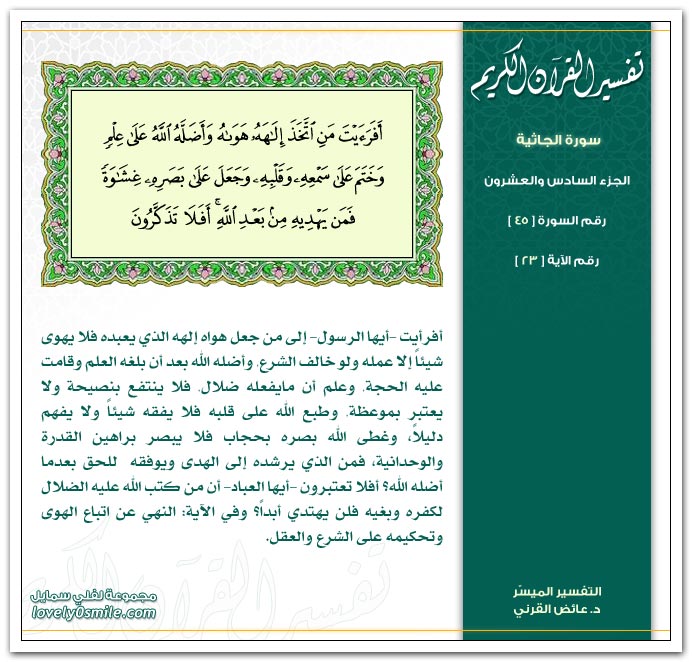 تفسير القرآن الكريم
سورة الجاثية
الجزء السادس والعشرون
رقم السورة [ ٤٥ ]
رقم الآية [ ٢٣ ]
أَفَرَءَيْتَ مَنِ ٱتَّخَذَ إِلَٰهَهُۥ هَوَىٰهُ وَأَضَلَّهُ ٱللَّهُ عَلَىٰ عِلْمٍۢ
وَخَتَمَ عَلَىٰ سَمْعِهِۦ وَقَلْبِهِۦ وَجَعَلَ عَلَىٰ بَصَرِهِۦ غِشَٰوَةً
فَمَن يَهْدِيهِ مِنۢ بَعْدِ ٱللَّهِ ۚ أَفَلَا تَذَكَّرُونَ
أفرأيت -أيها الرسول- إلى من جعل هواه إلهه الذي يعبده فلا يهوى
شيئاً إلا عمله ولو خالف الشرع. وأضله الله بعد أن بلغه العلم وقامت
عليه الحجة. وعلم أن مايفعله ضلال. فلا ينتفع بنصيحة ولا
يعتبر بموعظة. وطبع الله على قلبه فلا يفقه شيئاً ولا يفهم
دليلاً، وغطى الله بصره بحجاب فلا يبصر براهين القدرة
والوحدانية، فمن الذي يرشده إلى الهدى ويوفقه للحق بعدما
أضله الله؟ أفلا تعتبرون -أيها العباد- أن من كتب الله عليه الضلال
لكفره وبغيه فلن يهتدي أبداً؟ وفي الآية: النهي عن اتباع الهوى
وتحكيمه على الشرع والعقل.
تفسير القرآن الكريم
التفسير الميسّر
د. عائض القرني
مجموعة لفلي سمايل
lovely0smile.com